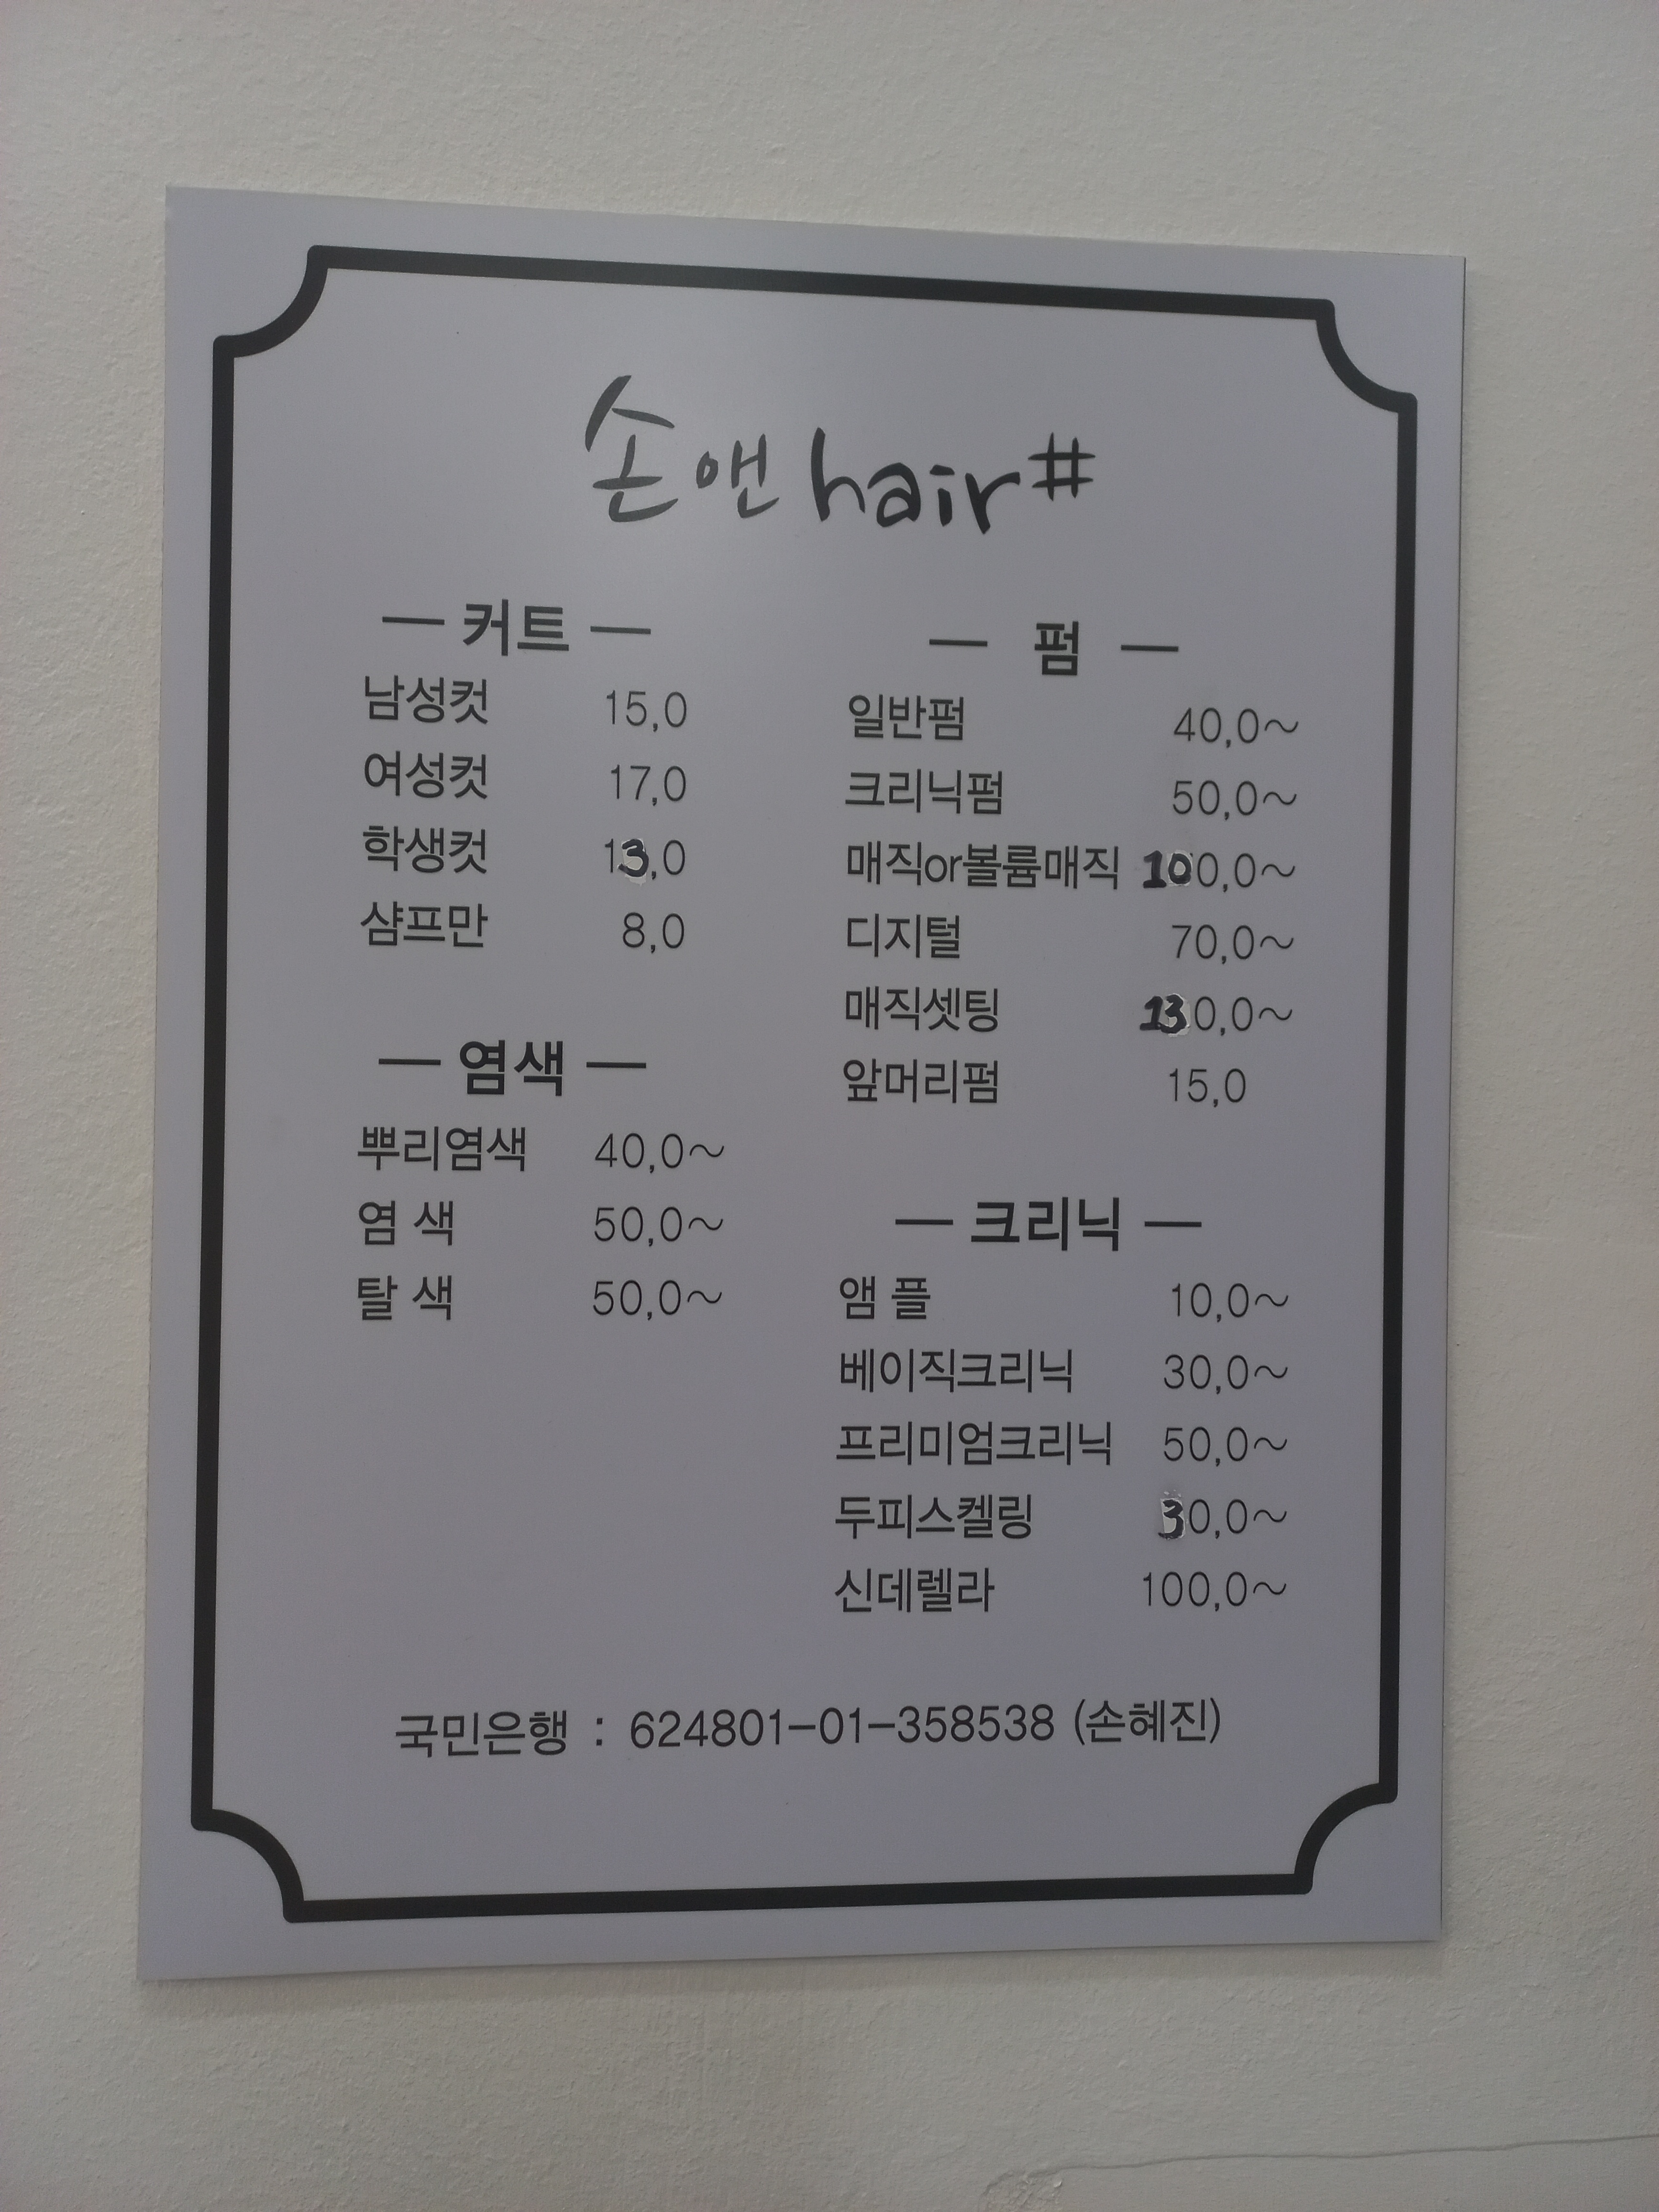 손앤hair#
— 커트 —
남성컷 15,0
여성컷 17,0
학생컷 13,0
샴프만 8,0
— 염색 —
뿌리염색 40,0~
염 색 50,0~
탈 색 50,0~
— 펌 —
일반펌 40,0~
크리닉펌 50,0~
매직or볼륨매직 100,0~
디지털 70,0~
매직셋팅 130,0~
앞머리펌 15,0
— 크리닉 —
앰 플 10,0~
베이직크리닉 30,0~
프리미엄크리닉 50,0~
두피스켈링 30,0~
신데렐라 100,0~
국민은행 : 624801-01-358538 (손혜진)